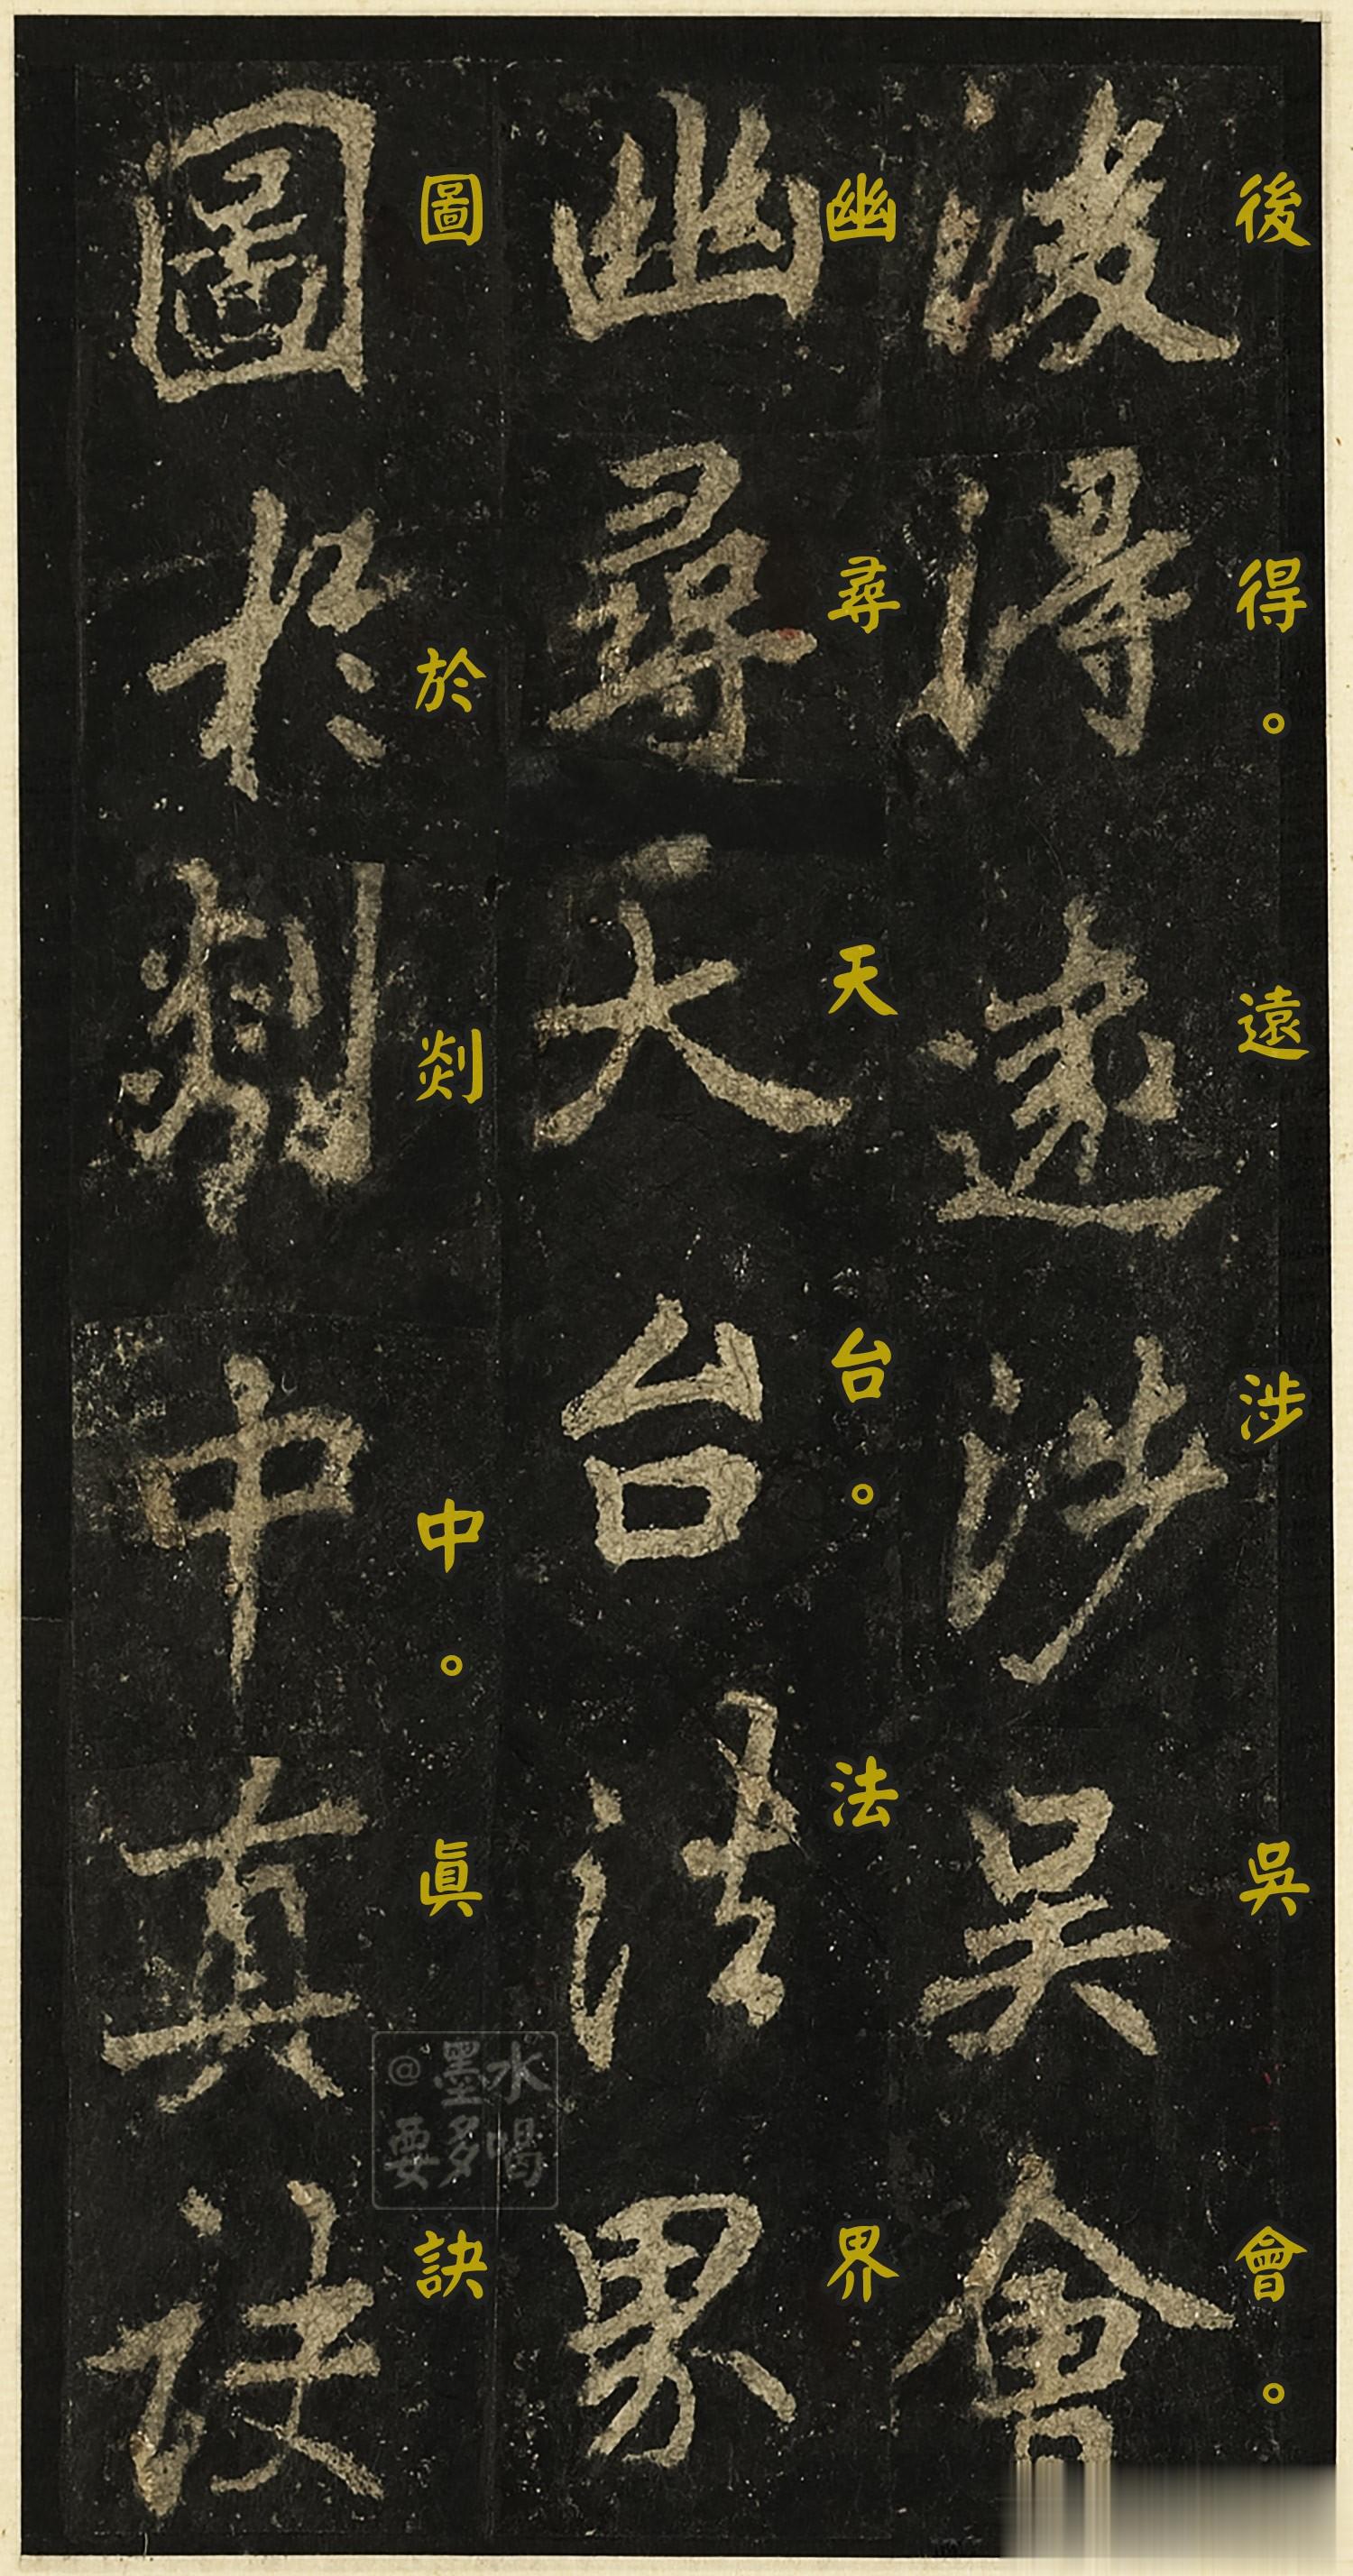 後得遠涉吳會
後得。遠涉吳會。
幽尋天台法界
幽尋天台。法界
圖於剡中真訣
圖於剡中。眞訣
@墨水
要多喝